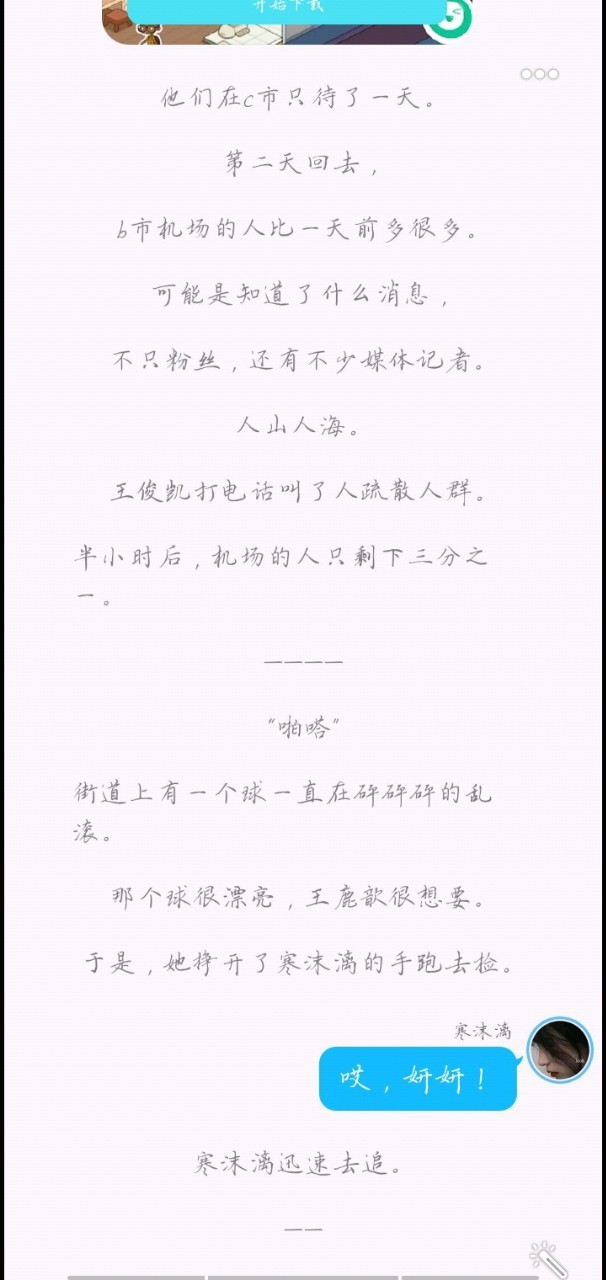 开始下载
他们在c市只待了一天。
第二天回去，
b市机场的人比一天前多很多。
可能是知道了什么消息，
不只粉丝，还有不少媒体记者。
人山人海。
王俊凯打电话叫了人疏散人群。
半小时后，机场的人只剩下三分之
一。
————
“啪嗒”
街道上有一个球一直在砰砰砰的乱
滚。
那个球很漂亮，王鹿歆很想要。
于是，她挣开了寒沫漓的手跑去捡。
寒沫漓
哎，妍妍！
寒沫漓迅速去追。
——